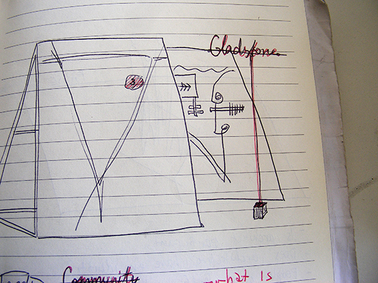 Gladstone
Community
what is